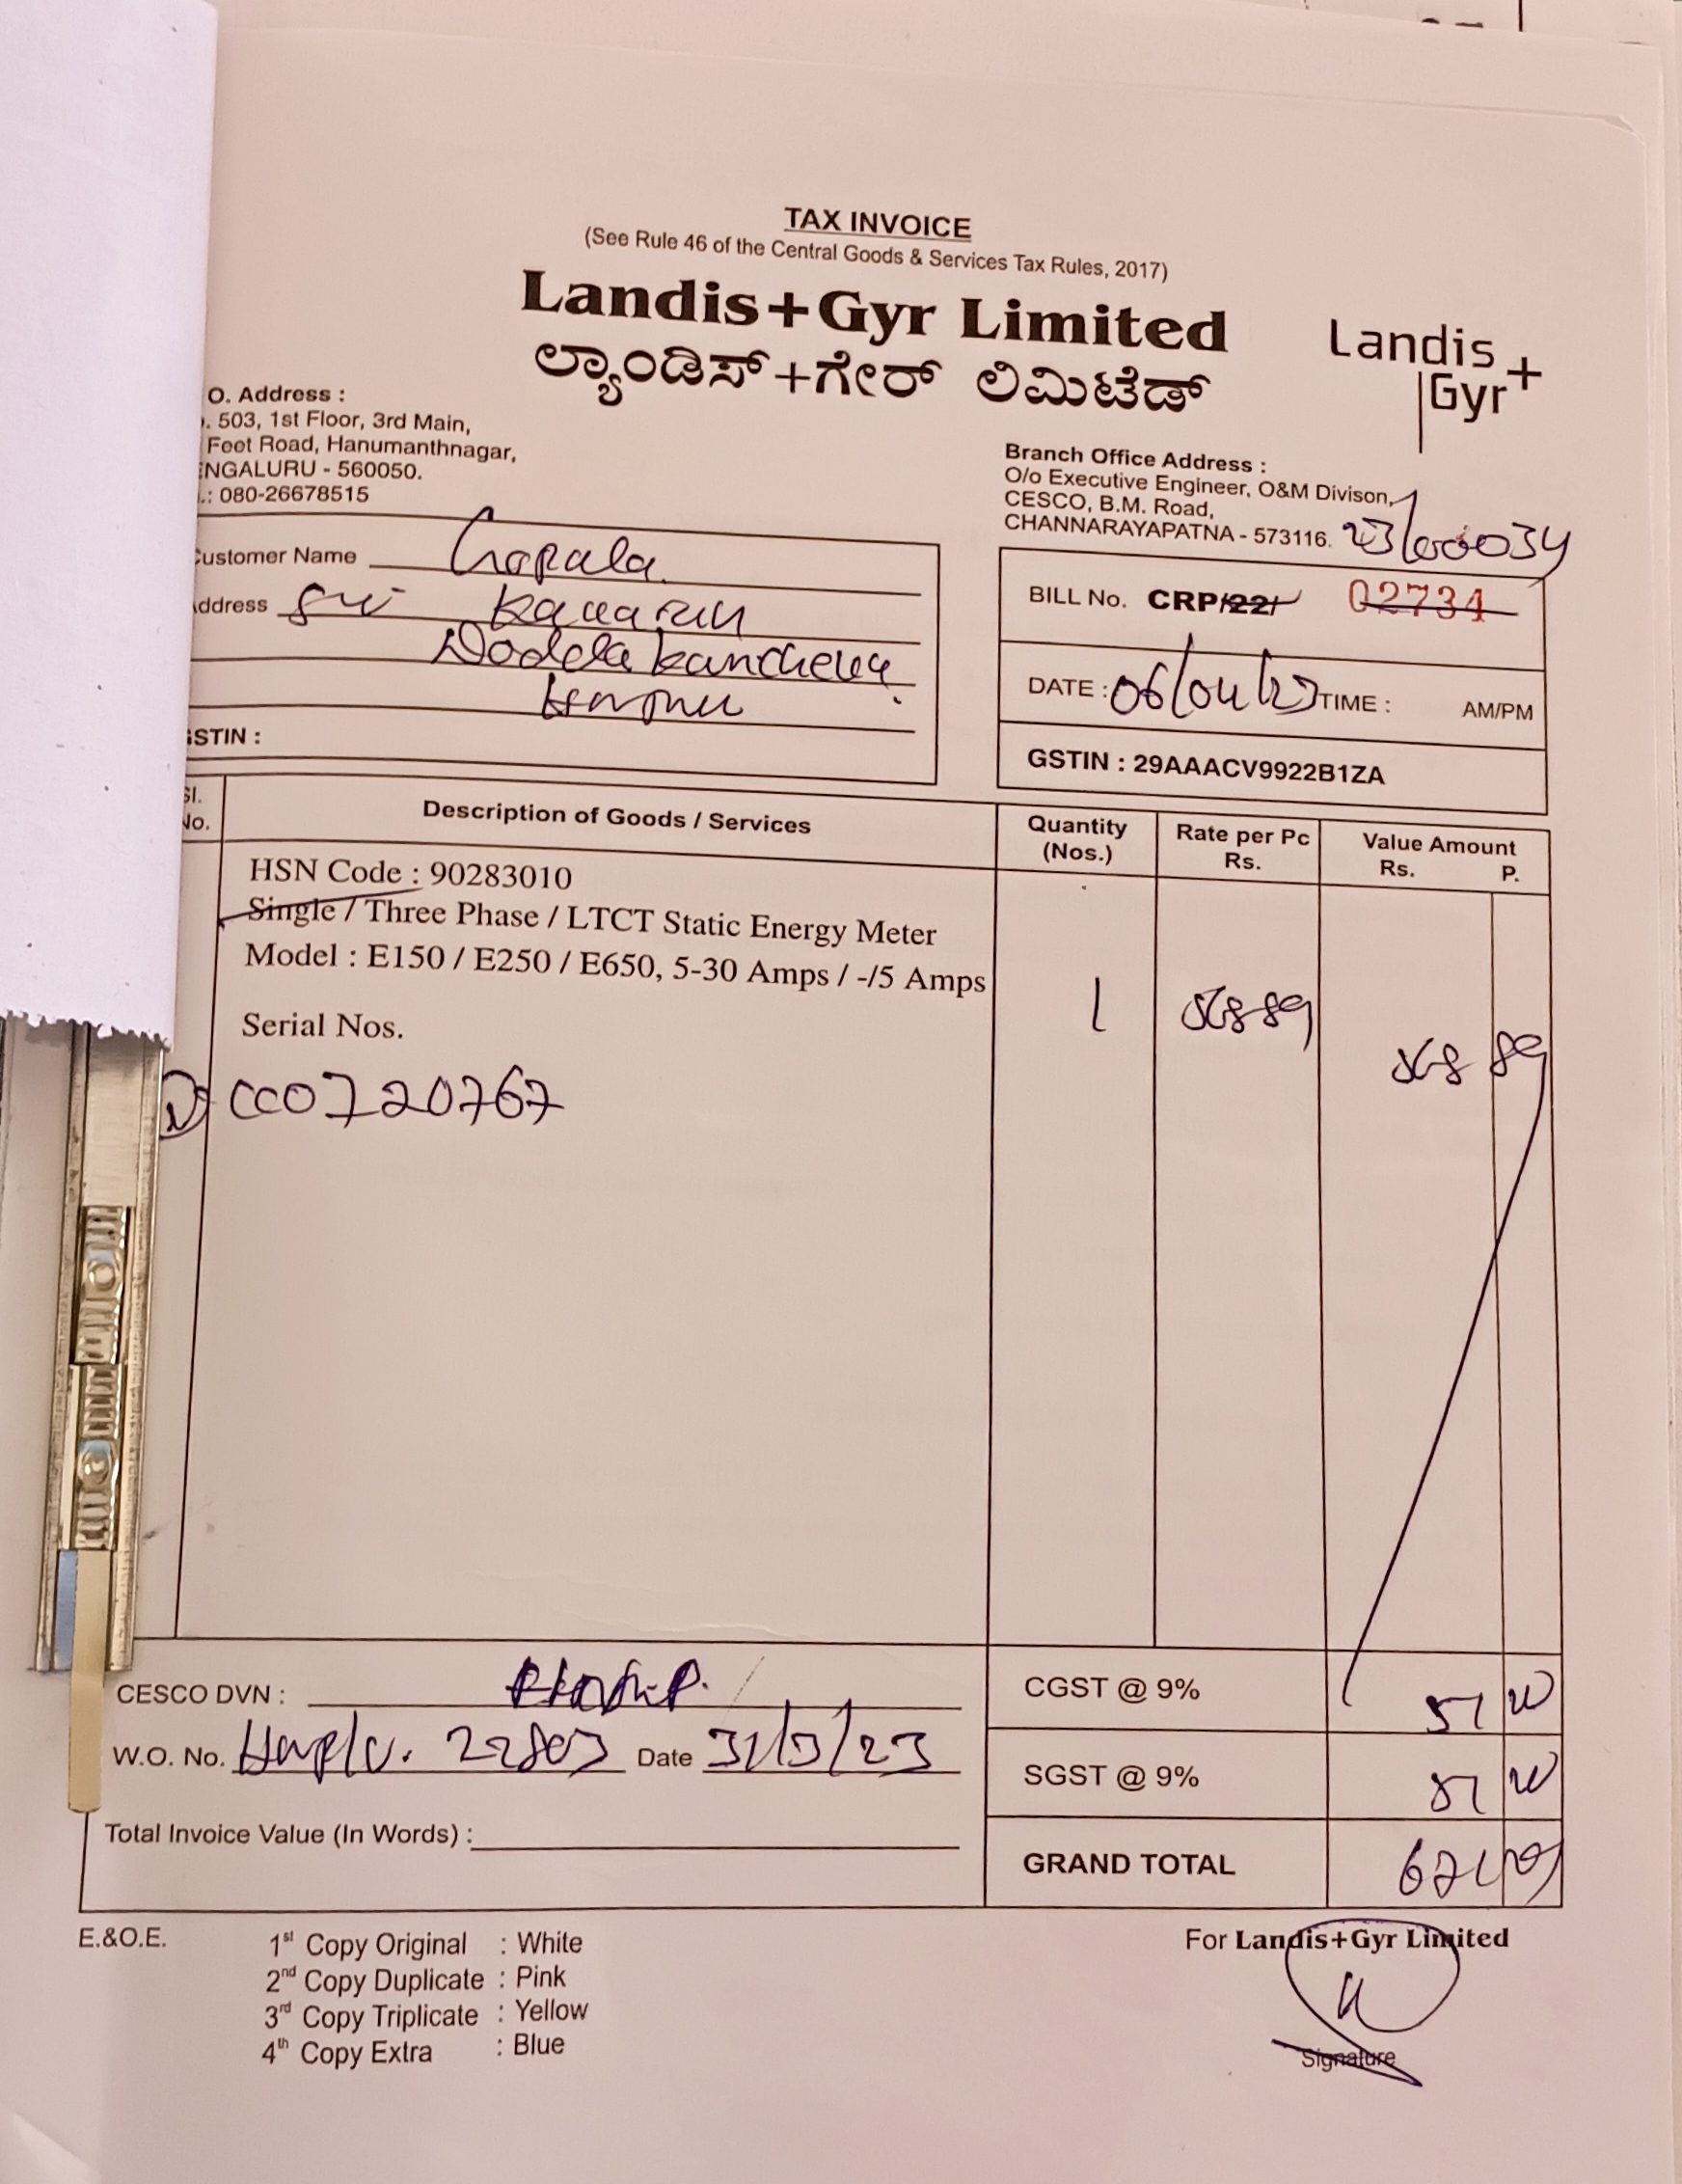 TAX INVOICE
(See Rule 46 of the Central Goods & Services Tax Rules, 2017)
Landis+Gyr Limited
ಲ್ಯಾಂಡಿಸ್+ಗೇರ್ ಲಿಮಿಟೆಡ್
Landis
Gyr+
O. Address :
. 503, 1st Floor, 3rd Main,
Feet Road, Hanumanthnagar,
ENGALURU - 560050.
.: 080-26678515
Branch Office Address :
O/o Executive Engineer, O&M Divison,
CESCO, B.M. Road,
CHANNARAYAPATNA - 573116.
Customer Name
Address
GSTIN :
BILL No. CRP/22/ 02734
DATE : 06/04/23 TIME : AM/PM
GSTIN : 29AAACV9922B1ZA
Sl. No. Description of Goods / Services Quantity (Nos.) Rate per Pc Rs. Value Amount Rs. P.
HSN Code : 90283010
Single / Three Phase / LTCT Static Energy Meter
Model : E150 / E250 / E650, 5-30 Amps / -/5 Amps
1 568 89
568 89
Serial Nos.
CC0720767
CESCO DVN :
CGST @ 9% 51 20
W.O. No. Date 31/3/23
SGST @ 9% 51 20
Total Invoice Value (In Words) :
GRAND TOTAL
E.&O.E.
1st Copy Original : White
2nd Copy Duplicate : Pink
3rd Copy Triplicate : Yellow
4th Copy Extra : Blue
For Landis+Gyr Limited
Signature